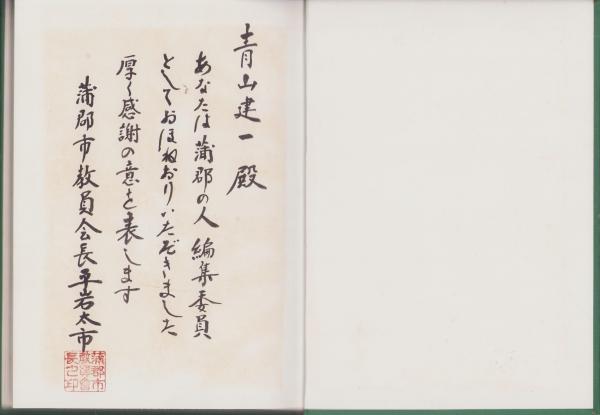 青山建一殿
あなたは蒲郡の人編集委員
としておほねおりいただきました
厚く感謝の意を表します
蒲郡市教員会長平岩太市
蒲郡市
教員會
長之印